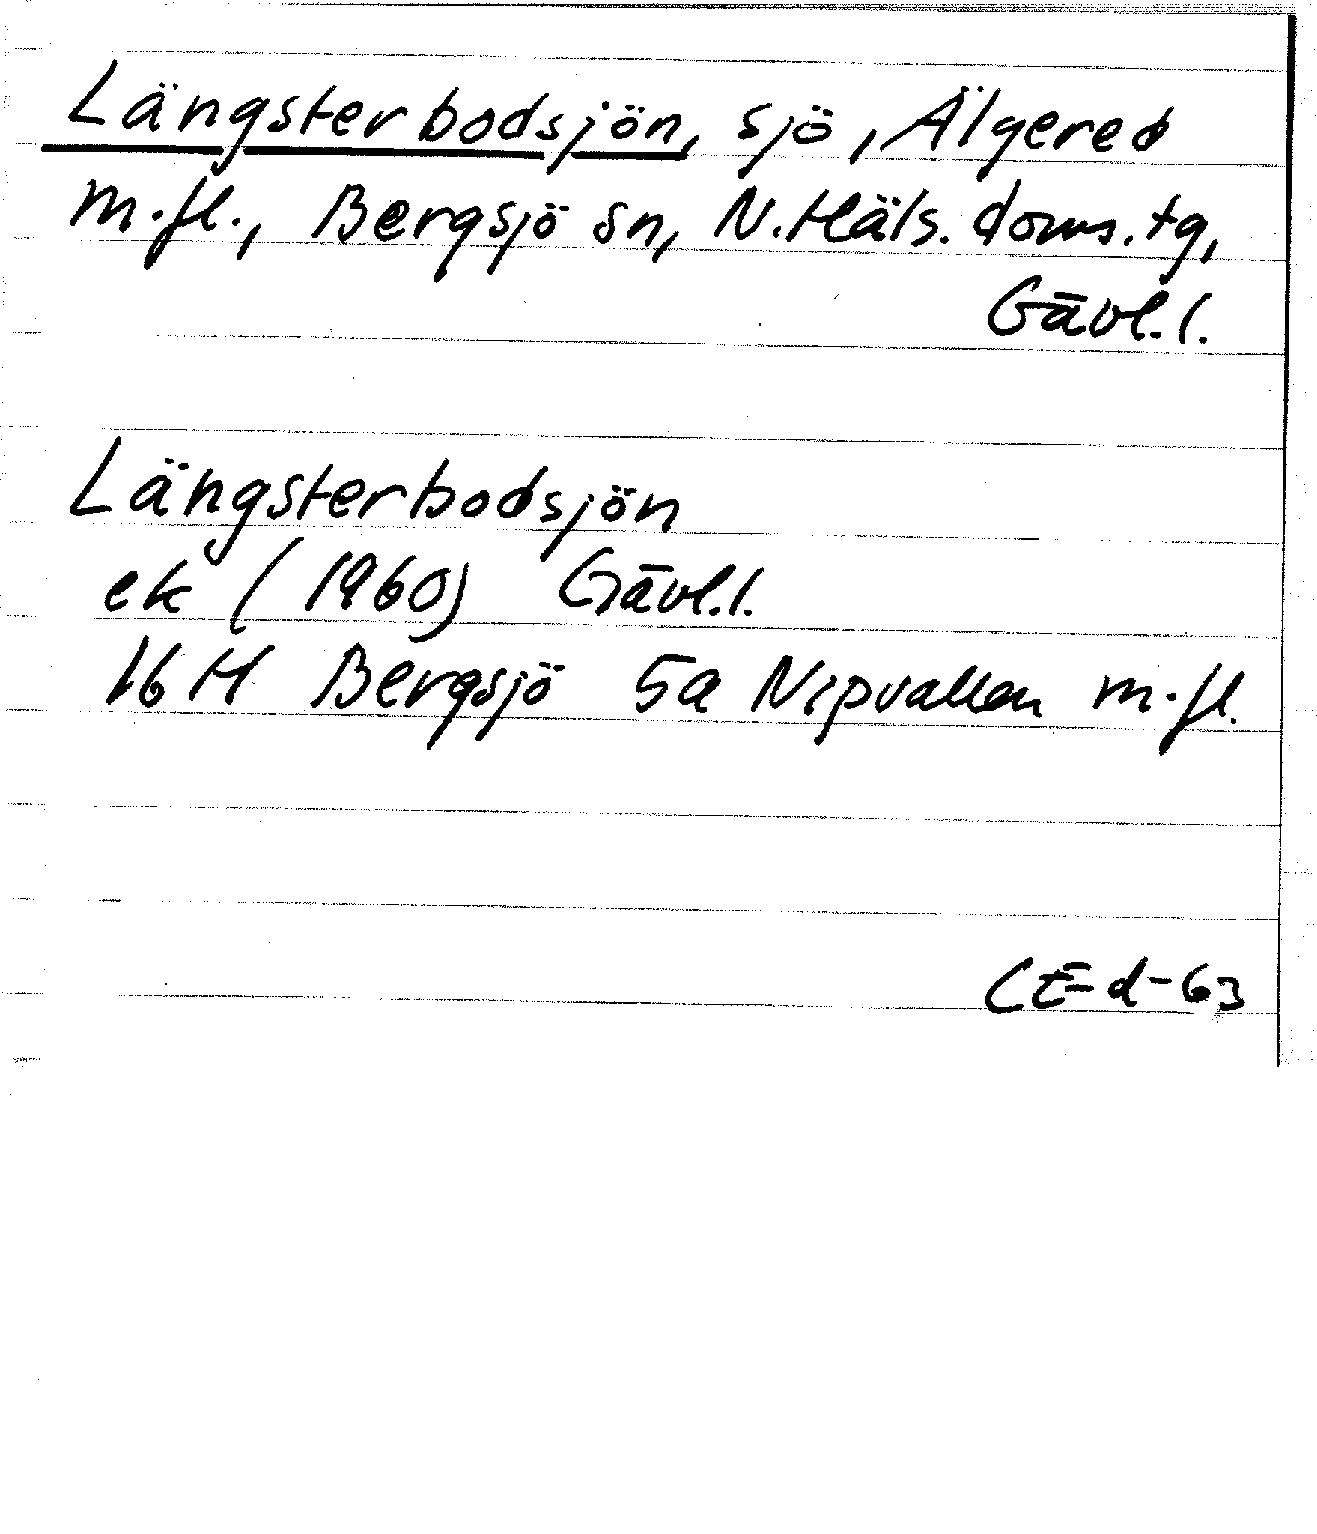 Längsterbodsjön, sjö, Älgered
m.fl., Bergsjö sn, N.Häls. doms.tg,
Gävl.l.
Längsterbodsjön
ek (1960) Gävl.l.
16 H Bergsjö 5a Nipvallen m.fl.
CEd-63